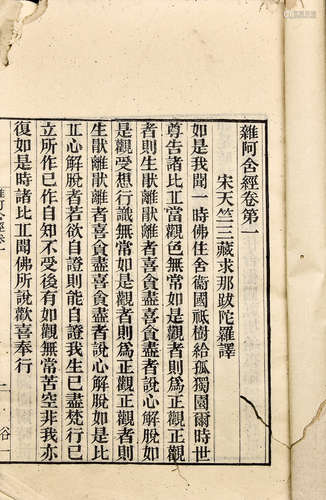 雜阿含經卷第一
宋天竺三藏求那跋陀羅譯
如是我聞一時佛住舍衞國祇樹給孤獨園爾時世
尊告諸比丘當觀色無常如是觀者則爲正觀正觀
者則生猒離猒離者喜貪盡喜貪盡者說心解脫如
是觀受想行識無常如是觀者則爲正觀正觀者則
生猒離猒離者喜貪盡喜貪盡者說心解脫如是比
丘心解脫者若欲自證則能自證我生已盡梵行已
立所作已作自知不受後有如觀無常苦空非我亦
復如是時諸比丘聞佛所說歡喜奉行
雜阿含經卷一
二
谷一